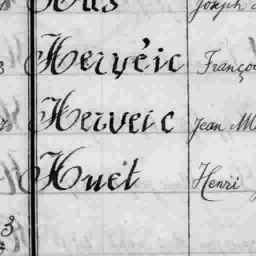 Joseph
Hervéic Franço
Herveic Jean M
Huet Henri
3